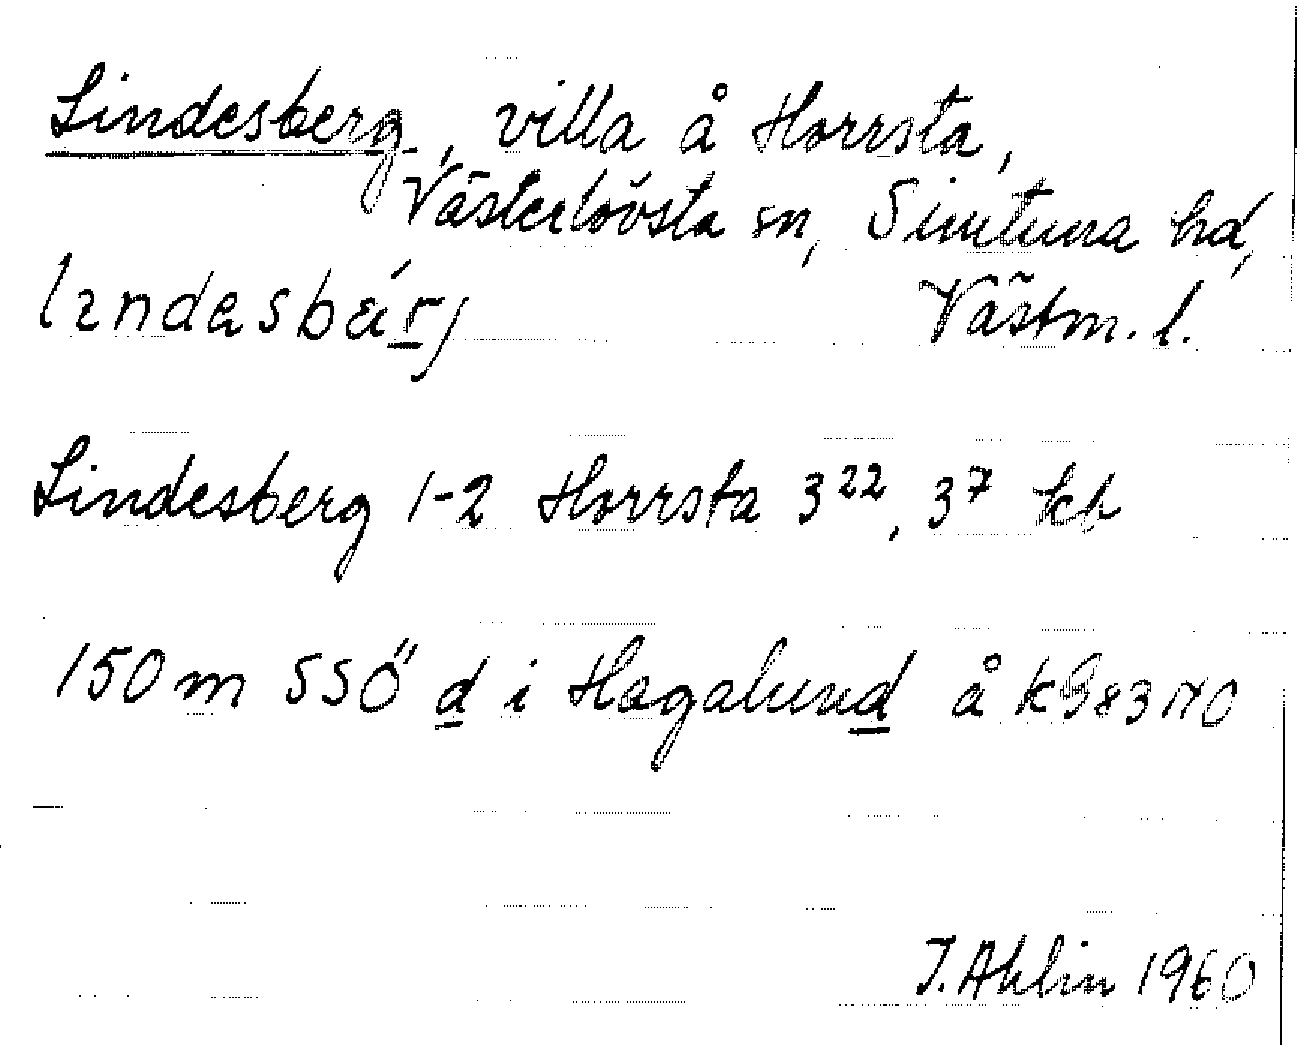 Lindesberg, villa å Horrsta,
Västerlövsta sn, Simtuna hd,
lındesbä́rj Västm. l.
Lindesberg 1-2 Horrsta 3²², 3⁷ kb
150 m SSÖ d i Hagalund å
J. Ahlin 1960